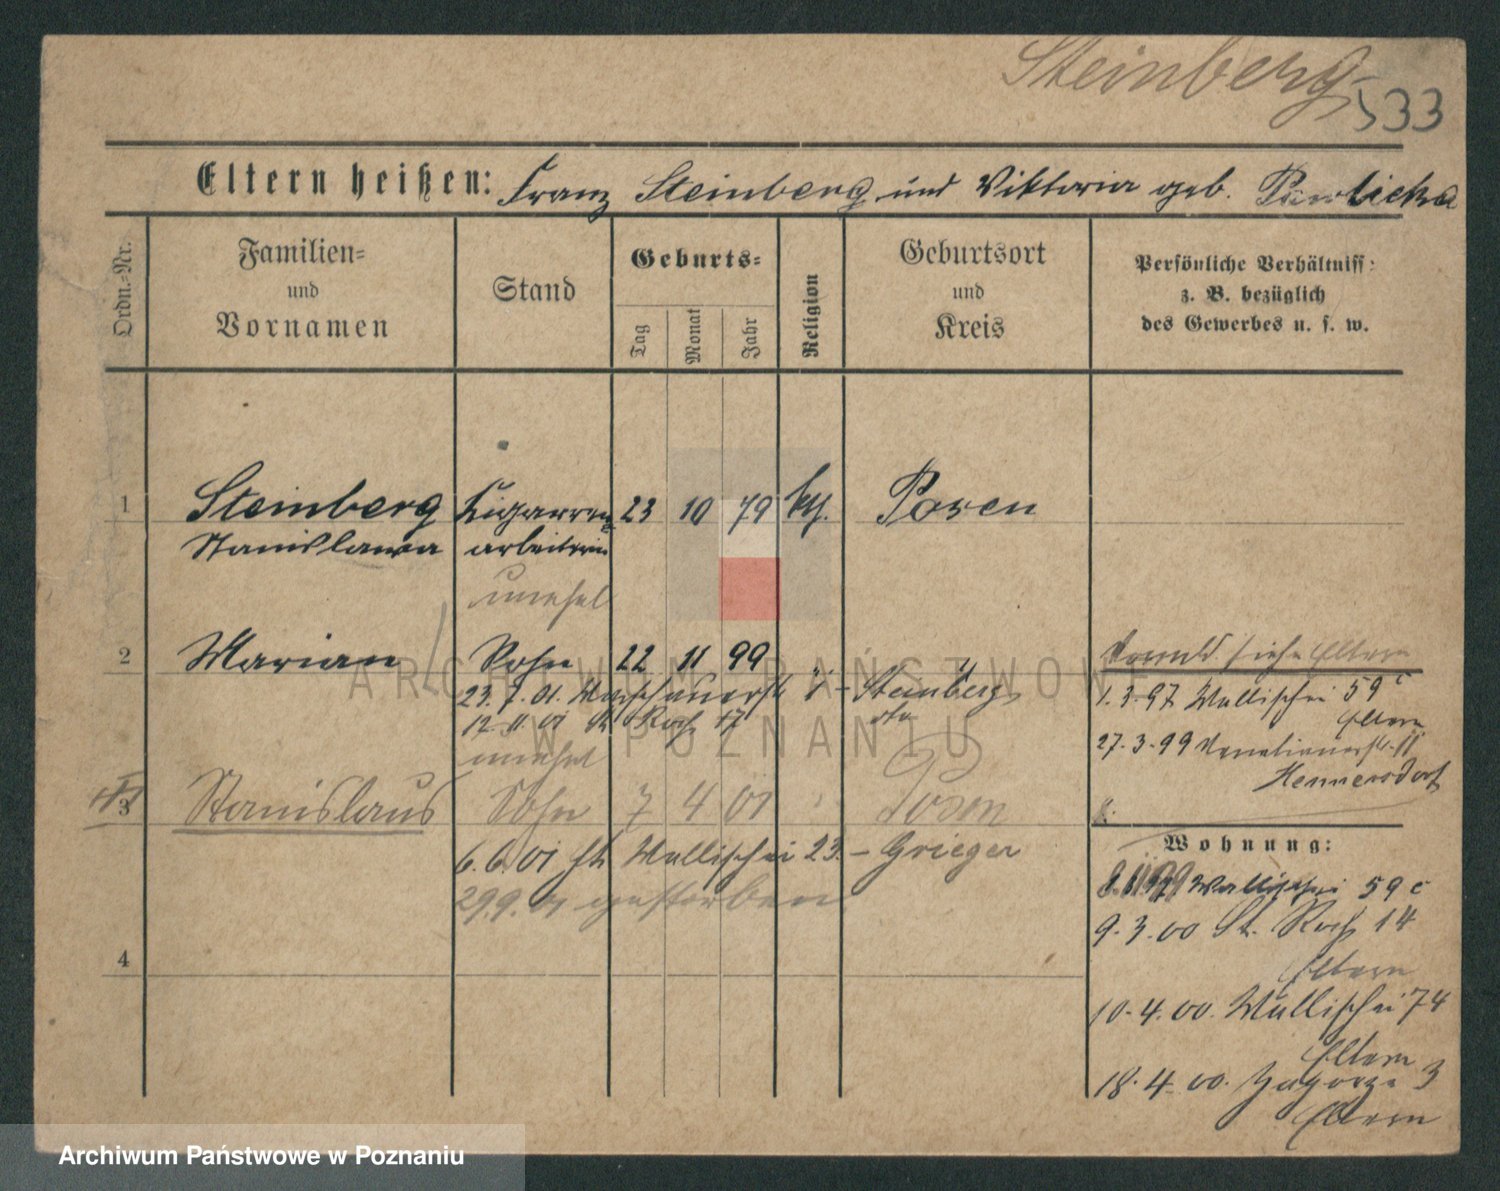 Steinberg
533
Eltern heißen: Franz Steinberg und Viktoria geb. Pawlicka
Ordn.-Nr.
Familien-
und
Vornamen
Stand
Geburts-
Tag
Monat
Jahr
Religion
Geburtsort
und
Kreis
Persönliche Verhältniss
z. B. bezüglich
des Gewerbes u. s. w.
1 Steinberg Cigarren 23 10 79 kth. Posen
Stanislawa arbeiterin
unehel
2 Marian Sohn 22 11 99
23. 7. 01. - Steinberg
12. 11. 01 St Roch 17
unehel
3 Stanislaus Sohn 7 4 01 Posen
6. 6. 01 Wallischei 23. - Grieger
29.9. 01 gestorben
4
siehe Eltern
1. 3. 97 Wallischei 59 c
Eltern
27. 3. 99 Venetianerstr. 11
Hennersdorf
Wohnung:
Wallischei 59 c
9. 3. 00 St. Roch 14
Eltern
10. 4. 00. Wallischei 74
Eltern
18. 4. 00. Zagorze 3
Eltern
ARCHIWUM PAŃSTWOWE
W POZNANIU
Archiwum Państwowe w Poznaniu